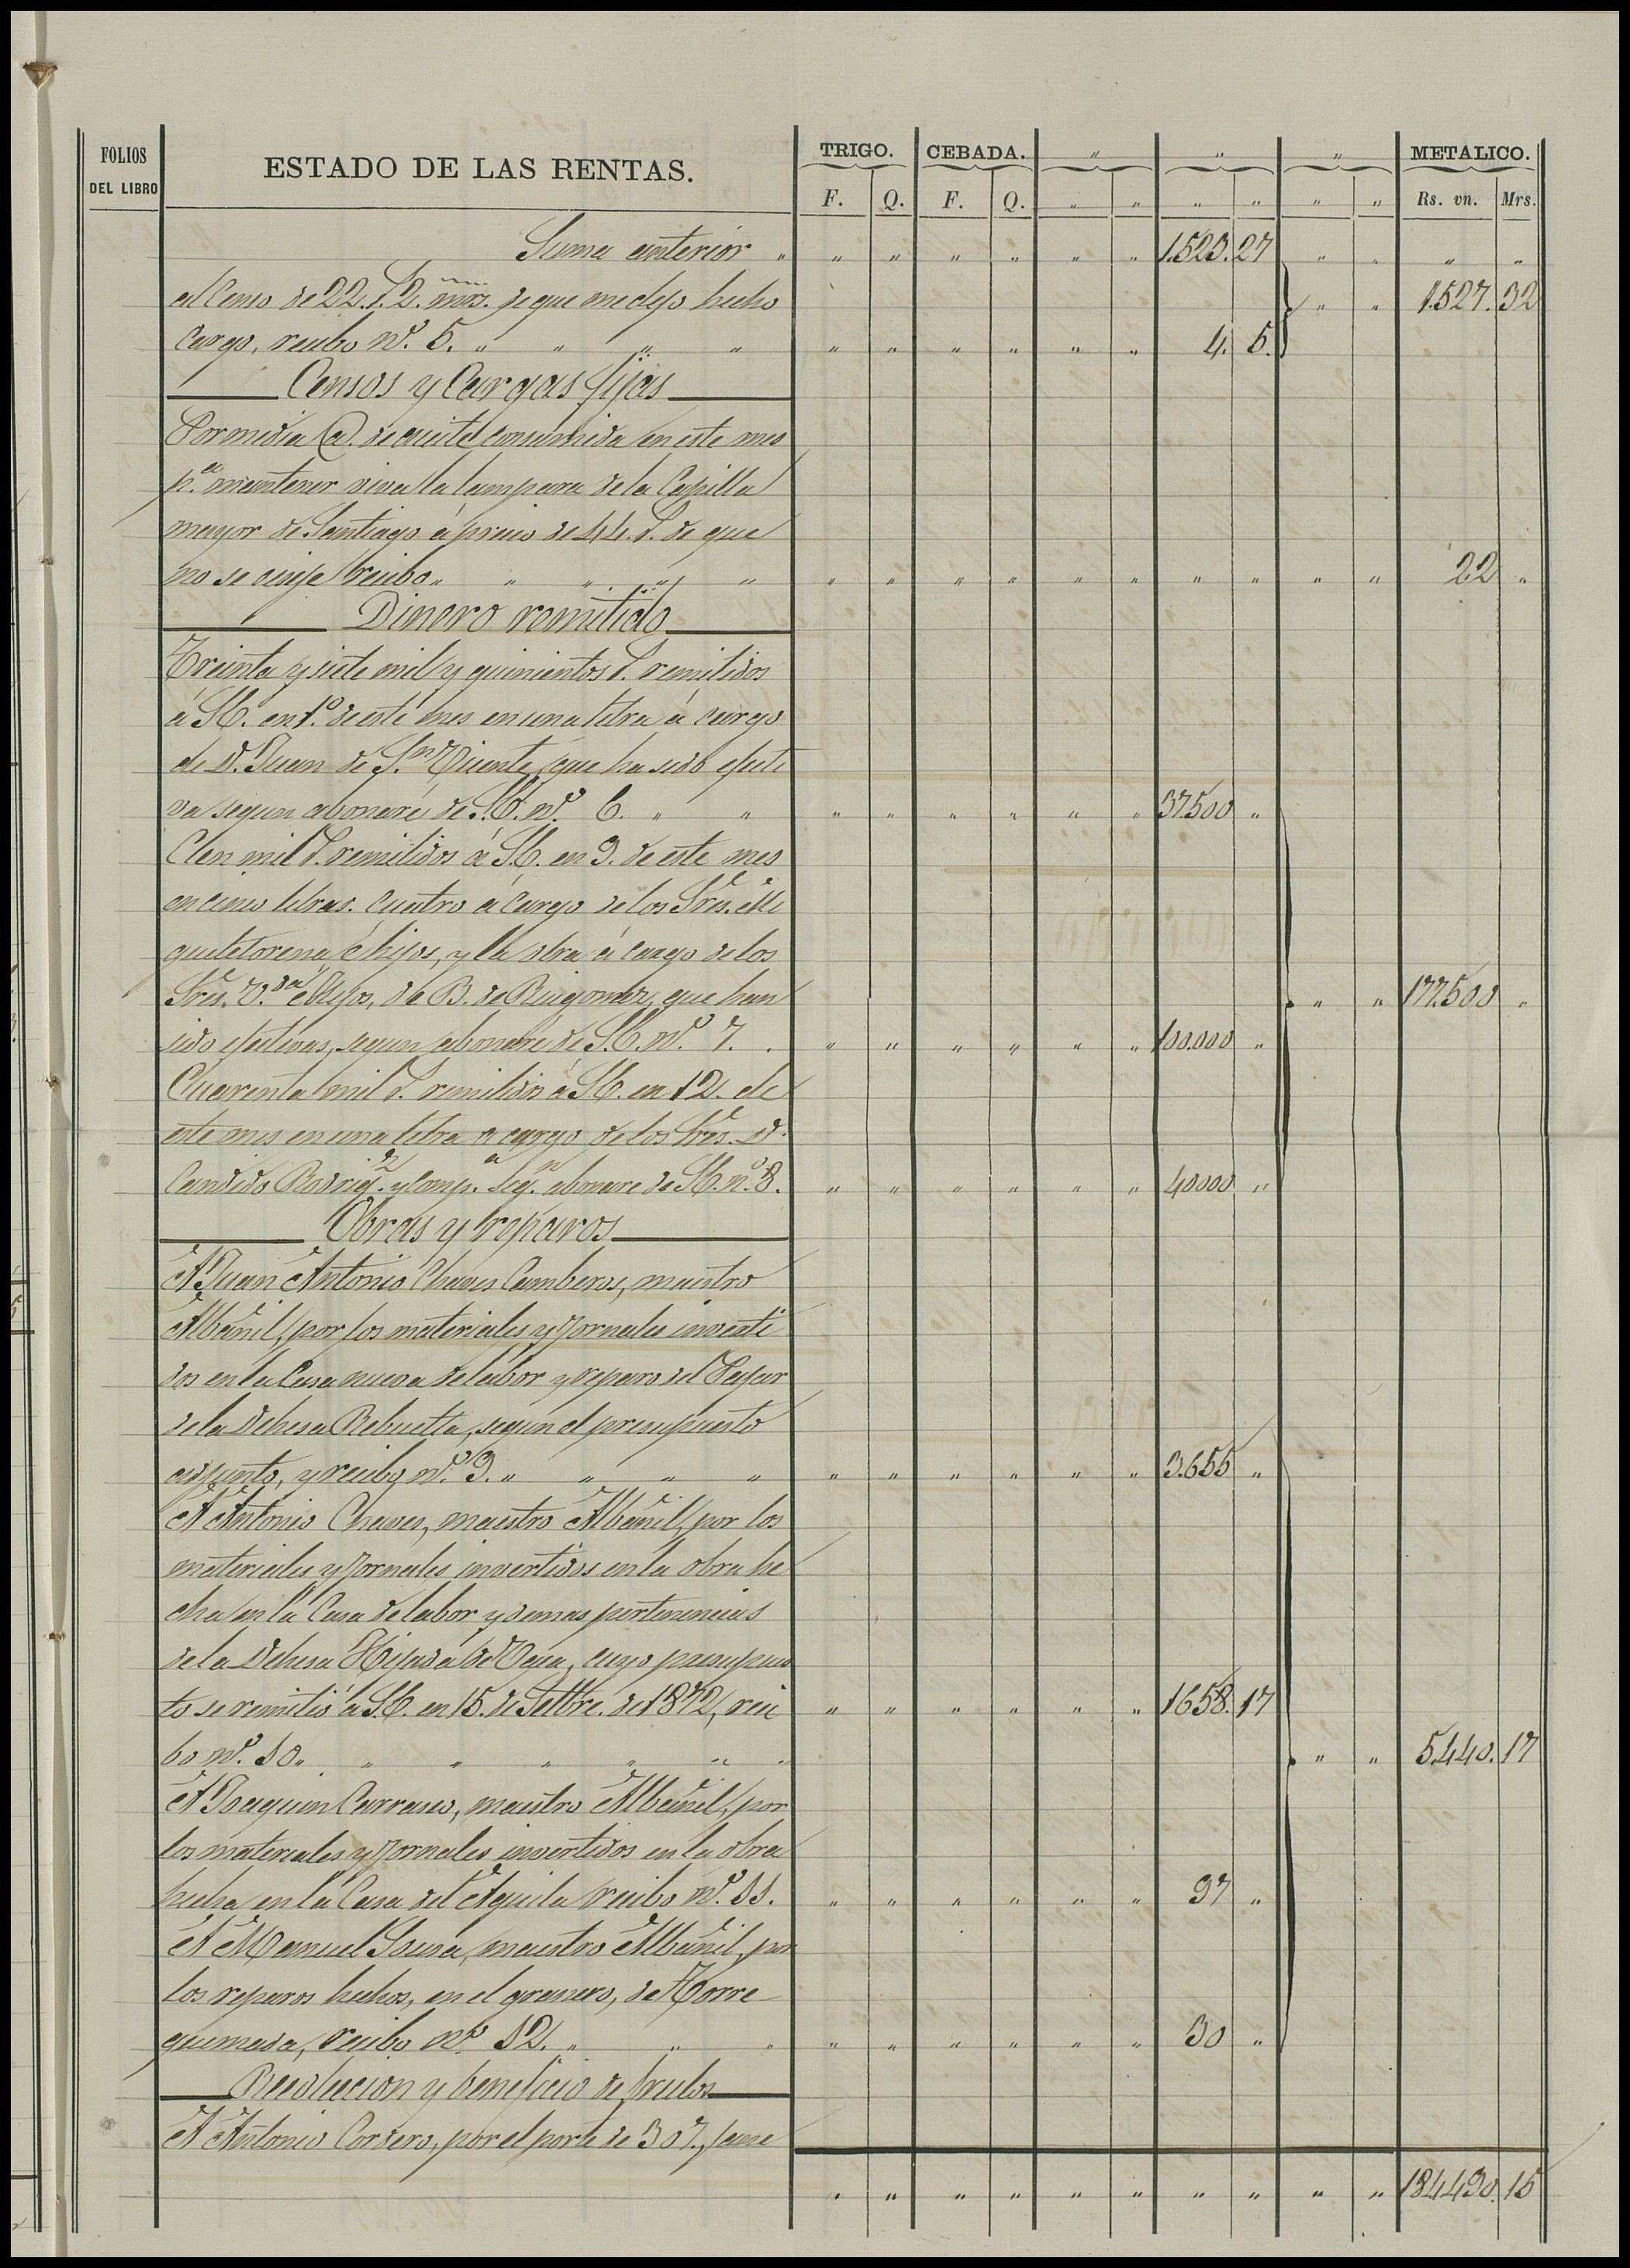 FOLIOS
DEL LIBRO
ESTADO DE LAS RENTAS.
TRIGO. CEBADA. " " " METALICO.
F. Q. F. Q. " " " " " " Rs. vn. Mrs.
Suma anterior " " " " " " " 1.523. 27 " " " "
el Censo de 22. r. 2. mrs. de que me dejo hecho " " 1.527. 32
cargo, recibo nº. 5. " " " " " " " " " " 4. 5.
Censos y Cargas fijas
Por media @. de aceite consumida en este mes
pª. mantener viva la lampara de la Capilla
mayor de Santiago á precio de 44. r. de que
no se exije recibo " " " " " " " " " " " " " " " 22 "
Dinero remitido
Treinta y siete mil y quinientos r. remitidos
á S.E. en 1º. de este mes en una letra á cargo
de D. Juan de Sn. Vicente, que ha sido efecti
va segun abonaré de S.E. nº. 6. " " " " " " " " 37.500 "
Cien mil r. remitidos á S.E. en 3. de este mes
en cinco letras. Cuatro á cargo de los Sres.
é hijos, y la otra á cargo de los
Sres. V.da é Hijos, de B. de que han " " 177.500 "
sido efectivas, segun abonaré de S.E. nº. 7. " " " " " " 100.000 "
Cuarenta mil r. remitidos á S.E. en 12. de
este mes en una letra a cargo de los Sres. D.
Candido Rodrigz. y Compª. segn. abonare de S.E. nº. 8. " " " " " " 40.000 "
Obras y reparos
A Juan Antonio Chaves Camberos, maestro
Albañil, por los materiales y Jornales inverti
dos en la Casa nueva de labor y reparo del Pajar
de la Dehesa Rebuelta, segun el presupuesto
adjunto, y recibo nº. 9. " " " " " " " " " " 3.655 "
A Antonio Chaves, maestro Albañil, por los
materiales y Jornales invertidos en la obra he
cha en la Casa de labor y demas pertenencias
de la Dehesa Hijada de Vaca, cuyo presupues
to se remitió á S.E. en 15. de Setbre. de 1872, reci " " " " " " 1.658. 17
bo nº. 10. " " " " " " " " 5.440. 17
A Joaquin Carrasco, maestro Albañil, por
los materiales y Jornales invertidos en la obra
hecha en la Casa del Aguila recibo nº. 11. " " " " " " 97 "
A Manuel Sousa, maestro Albañil, por
los reparos hechos, en el granero, de Torre
quemada, recibo nº. 12. " " " " " " " " " 30 "
Recoleccion y beneficio de frutos
A Antonio Cordero, por el porte de 307, fane
" " " " " " " " " " 184.490. 15